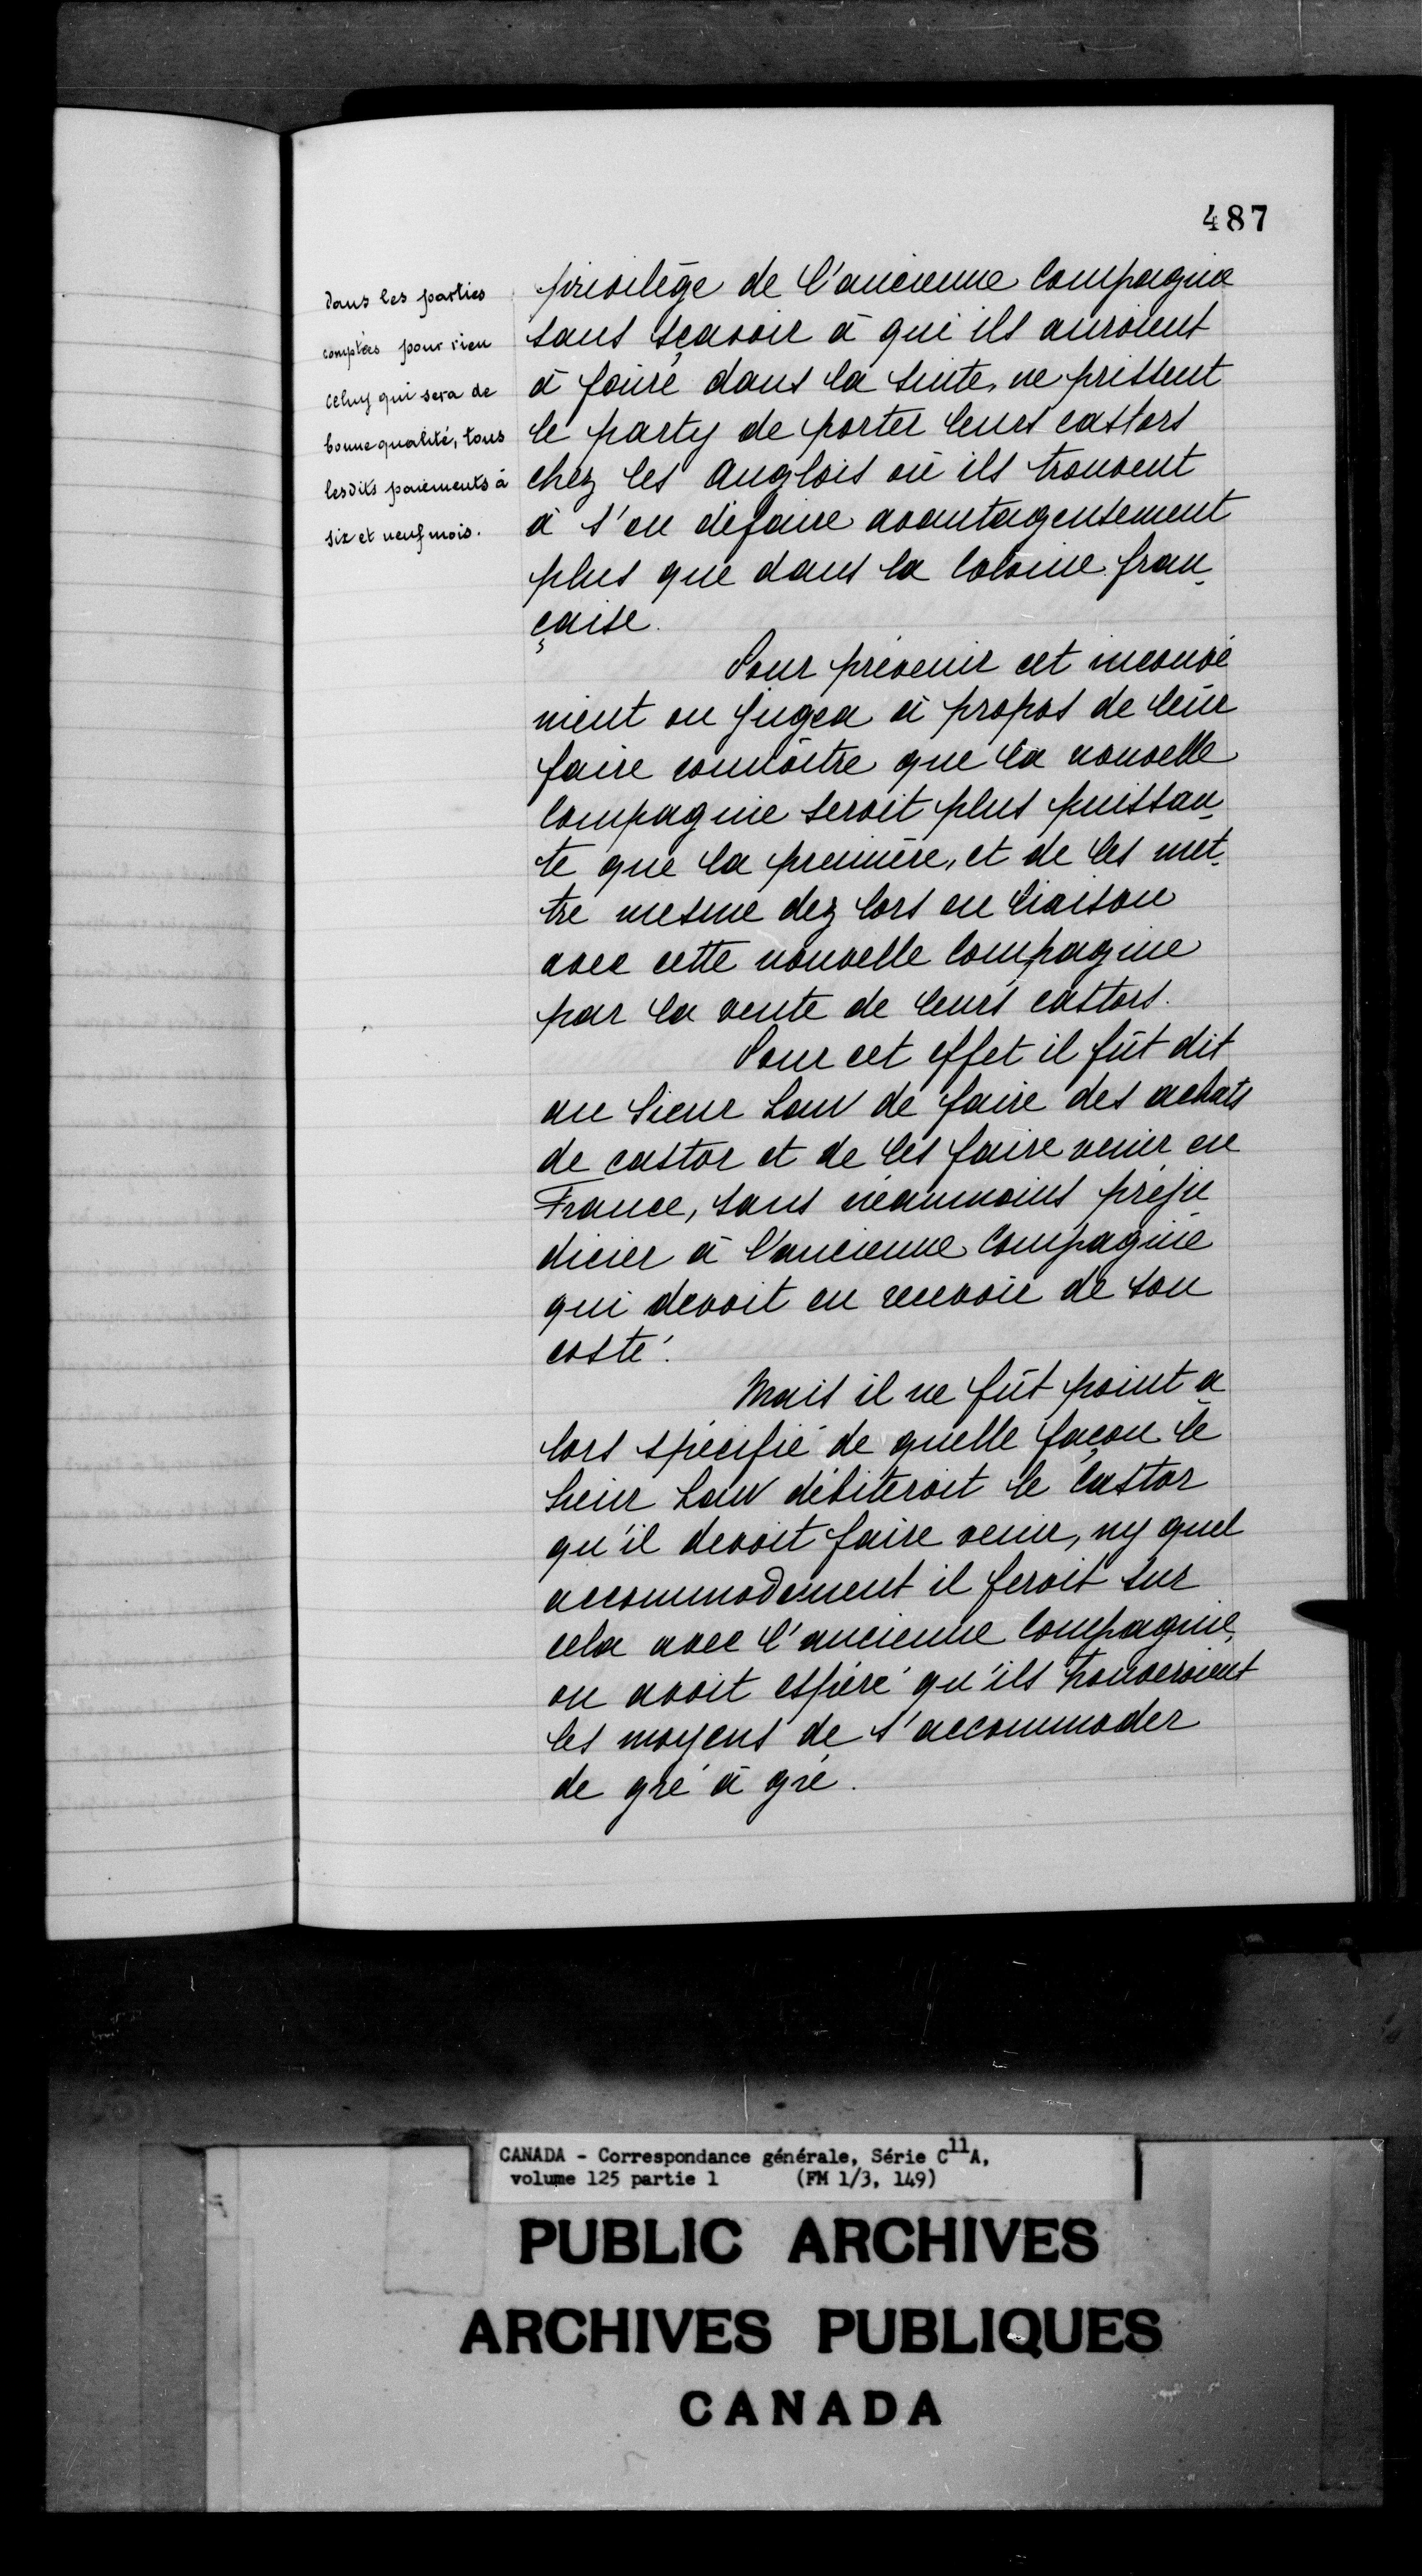 487
dans les parties
comptées pour rien
celuy qui sera de
bonne qualité, tous
lesdits paiements à
six et neuf mois.
privilège de l'ancienne Compagnie
sans sçavoir à qui ils auroient
à faire dans la suite, ne prissent
le party de porter leurs castors
chez les Anglois où ils trouvent
à s'en défaire avantageusement
plus que dans la Colonie fran-
çaise.
Pour prévenir cet inconvé
nient on jugea à propos de leur
faire connoître que la nouvelle
Compagnie seroit plus puissan-
te que la première, et de les met-
tre mesme dez lors en liaison
avec cette nouvelle Compagnie
par la vente de leurs castors.
Pour cet effet il fût dit
au Sieur Law de faire des achats
de castor et de les faire venir en
France, sans néanmoins préju
dicier à l'ancienne Compagnie
qui devoit en recevoir de son
costé.
Mais il ne fût point a-
lors spécifié de quelle façon le
Sieur Law débiteroit le Castor
qu'il devoit faire venir, ny quel
accommodement il feroit sur
cela avec l'ancienne Compagnie,
on avoit espéré qu'ils trouveroient
les moyens de s'accommoder
de gré à gré.
CANADA - Correspondance générale, Série C11A,
volume 125 partie 1 (FM 1/3, 149)
PUBLIC ARCHIVES
ARCHIVES PUBLIQUES
CANADA